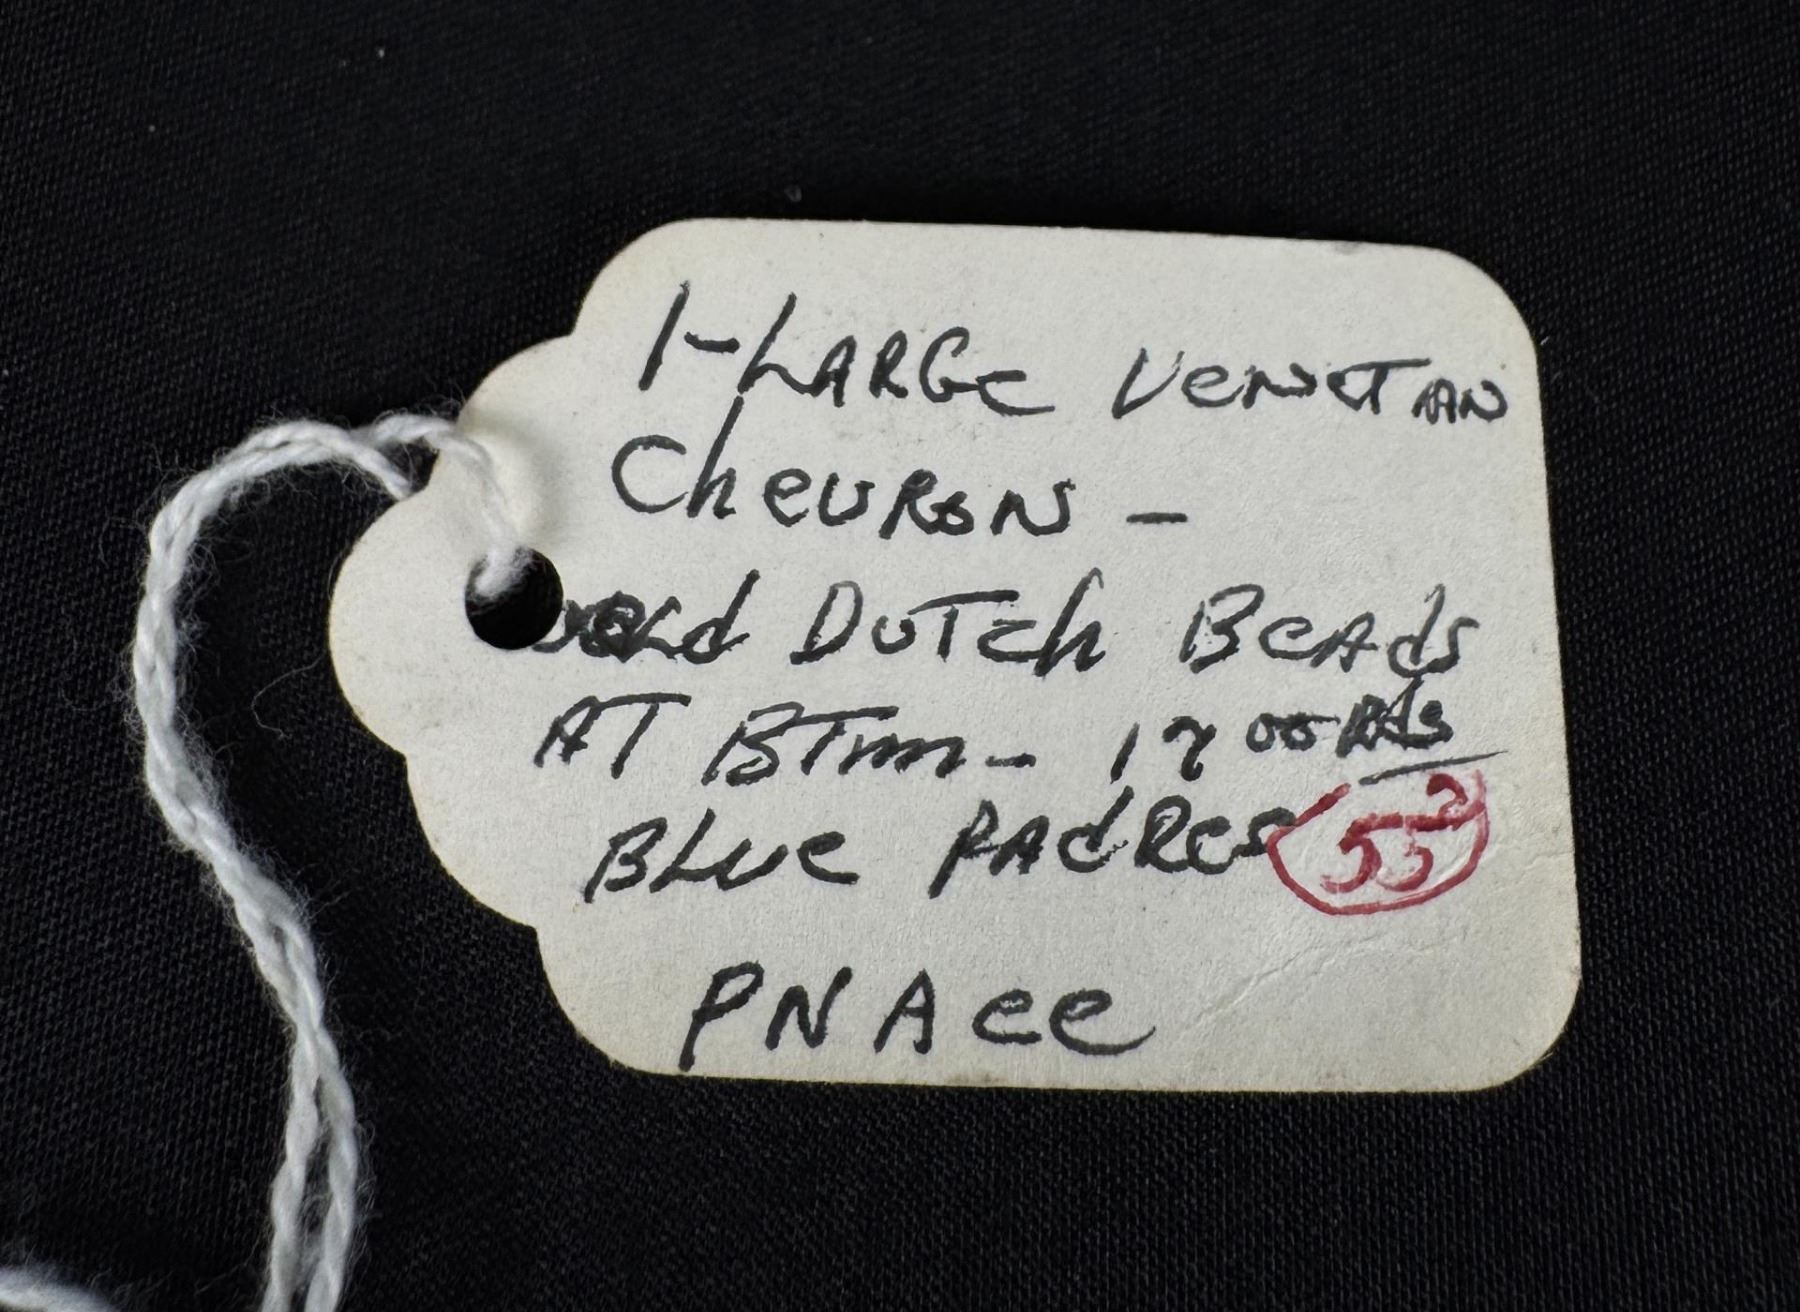 1-LARGE VENETIAN
CheVRON -
OLd DUTch BeAds
AT BTTM - 1700s
BLUe PAdRes 55²
PNAcc